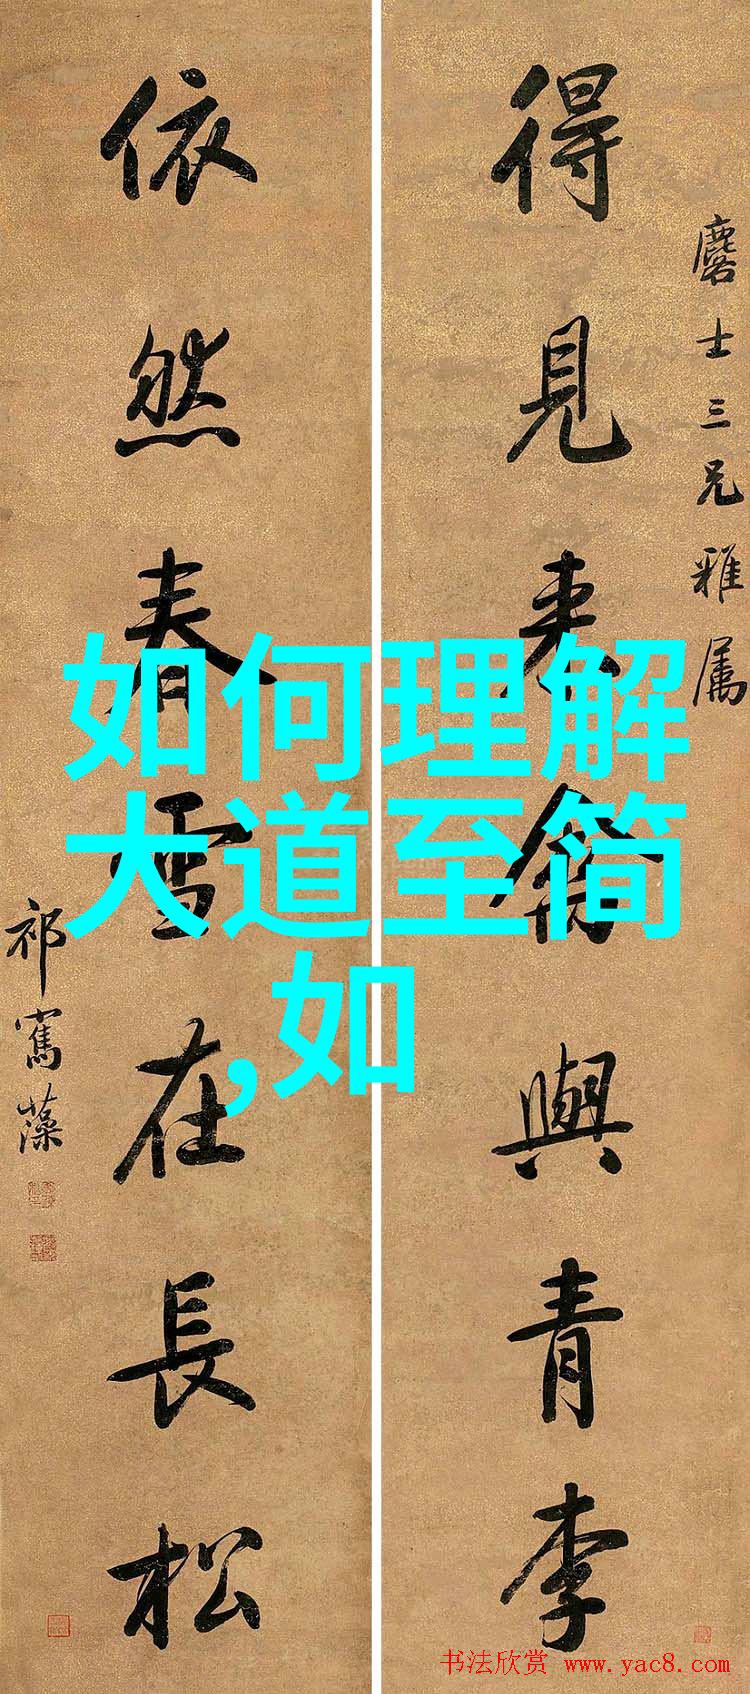 麐士三兄雅屬
得見来禽與青李
依然春雪在長松
祁寯藻
如何理解
大道至简
,如
书法欣赏 www.yac8.com